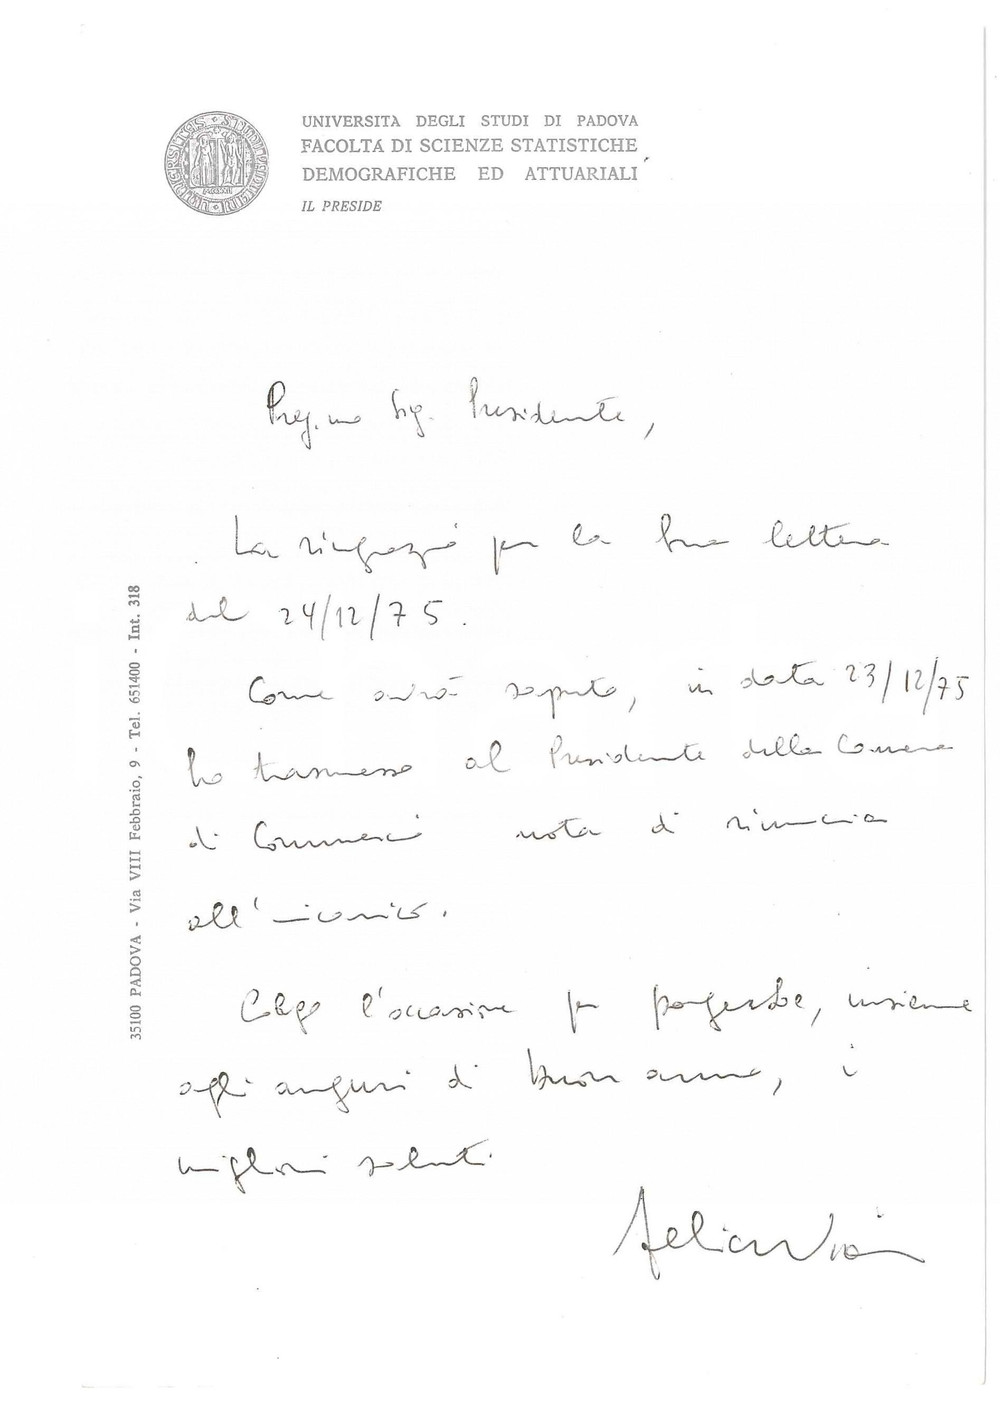 UNIVERSITA DEGLI STUDI DI PADOVA
FACOLTÀ DI SCIENZE STATISTICHE
DEMOGRAFICHE ED ATTUARIALI
IL PRESIDE
Preg.mo Sig. Presidente,
La ringrazio per la Sua lettera
del 24/12/75.
Come avrà saputo, in data 23/12/75
ho trasmesso al Presidente della Camera
di Commercio nota di rinuncia
all'incarico.
Colgo l'occasione per porgerLe, insieme
agli auguri di buon anno, i
migliori saluti.
Felice Vian
35100 PADOVA - Via VIII Febbraio, 9 - Tel. 651400 - Int. 318